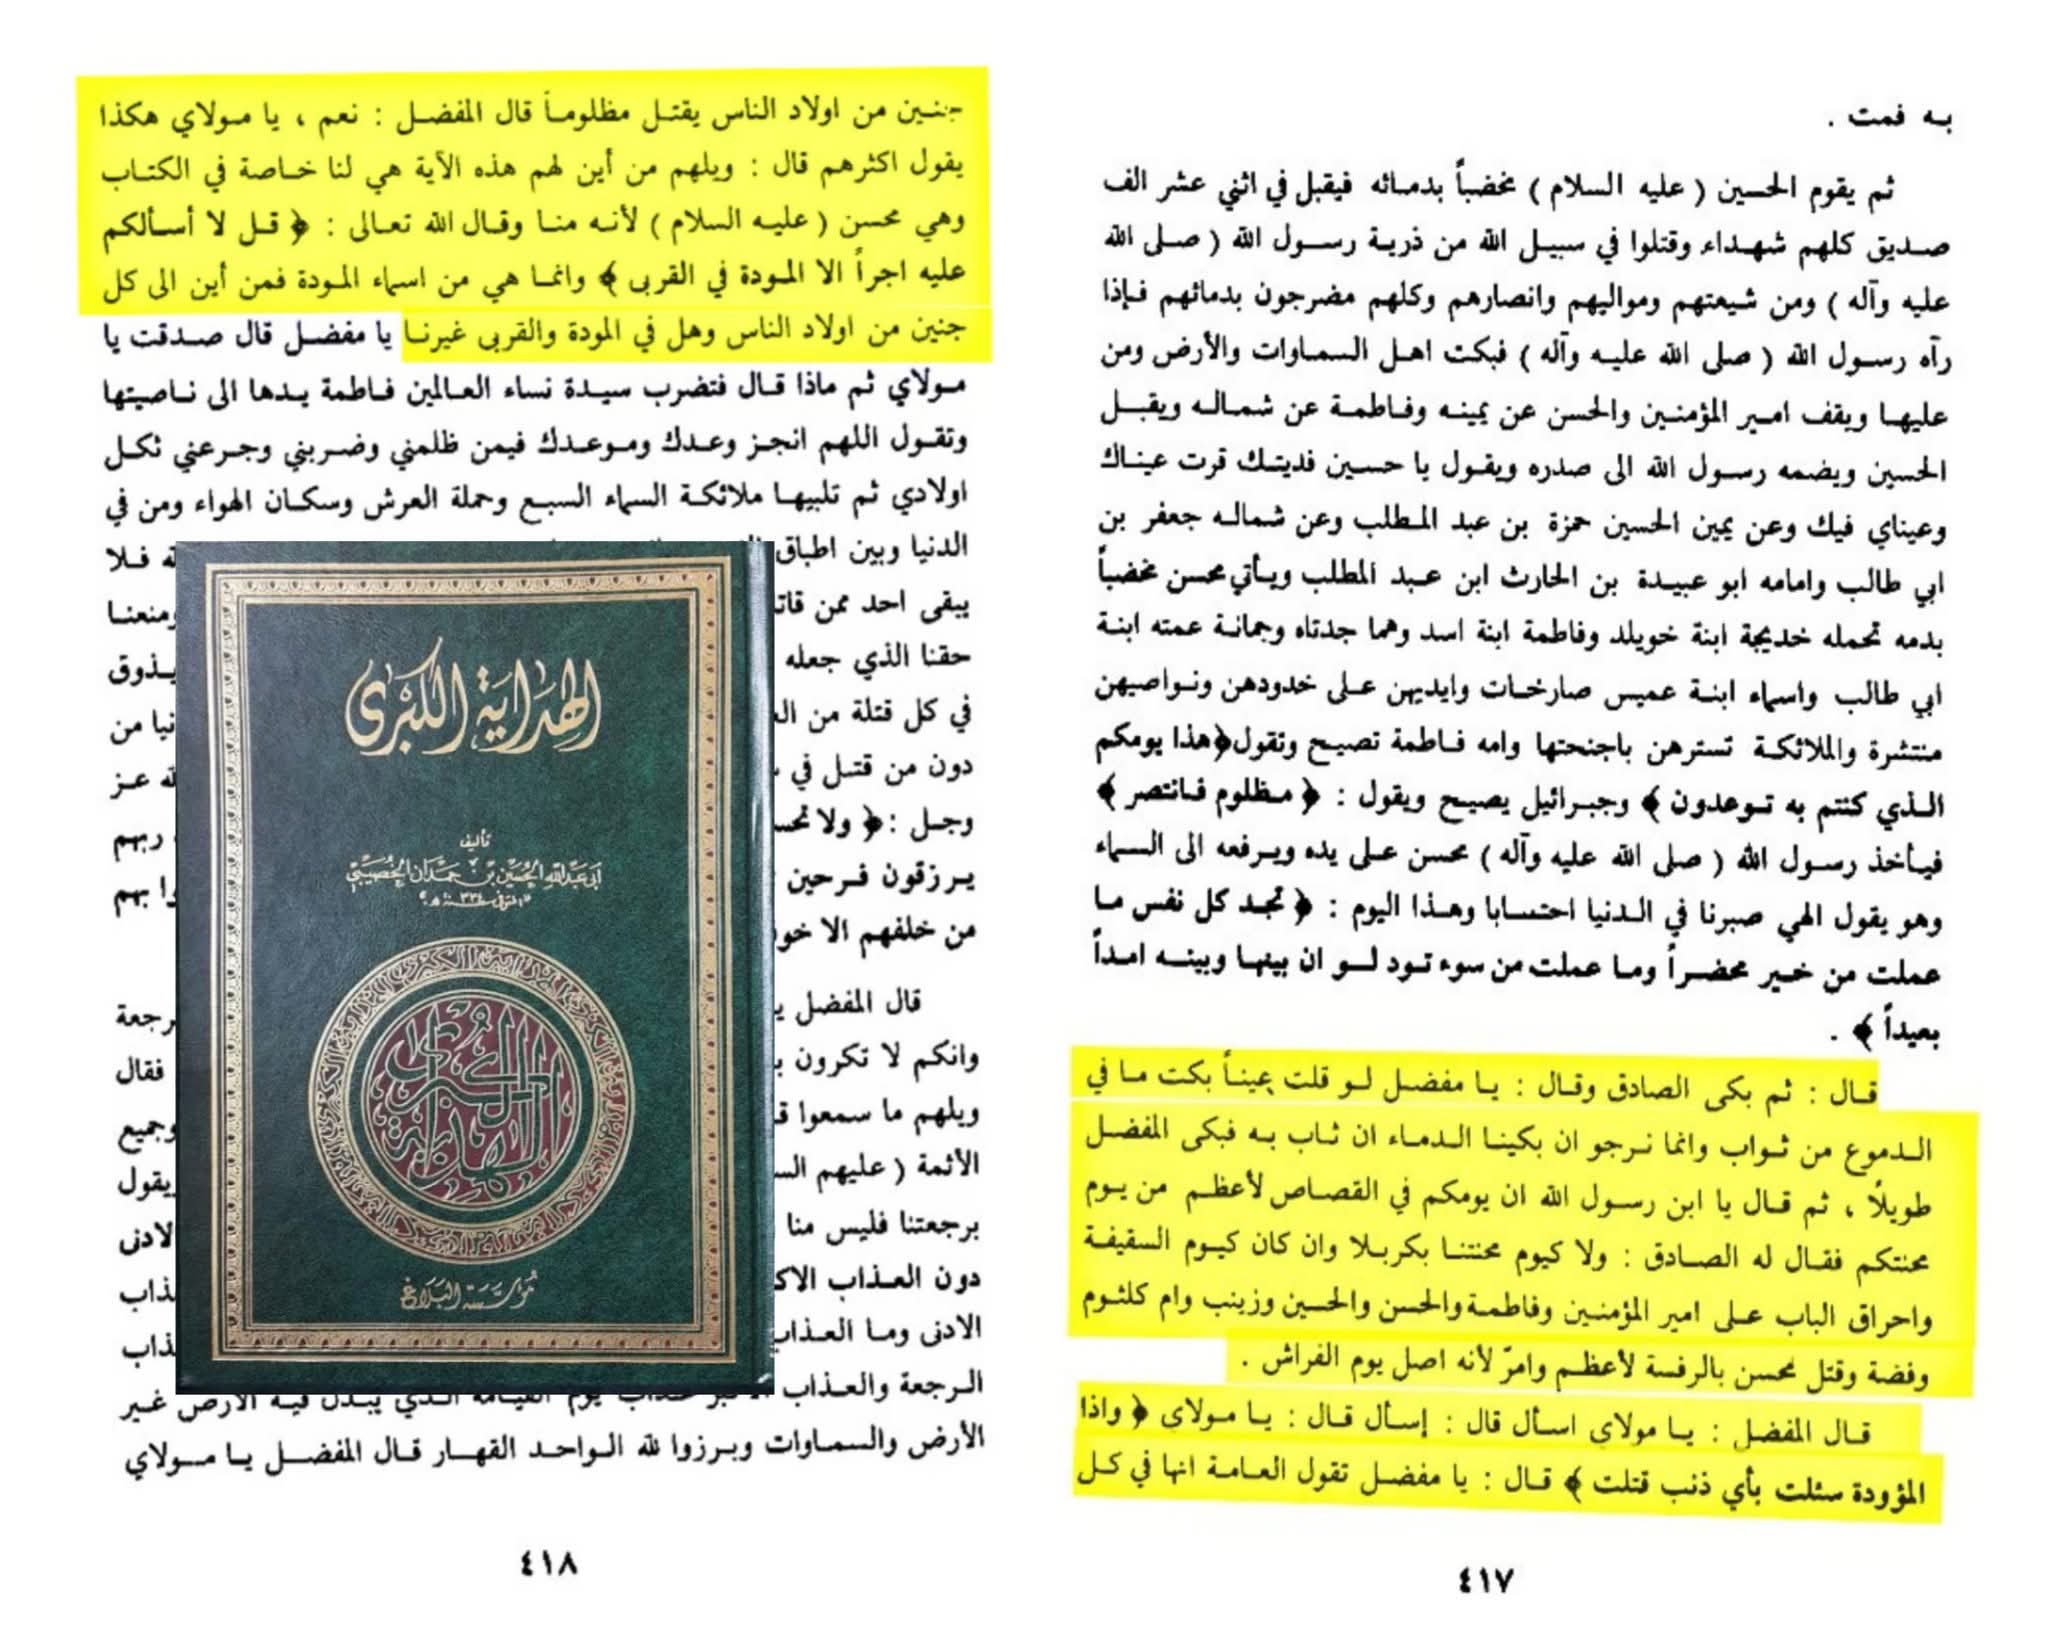 به فمت .
ثم يقوم الحسين ( عليه السلام ) مخضباً بدمائه فيقبل في اثني عشر الف
صديق كلهم شهداء وقتلوا في سبيل الله من ذرية رسول الله ( صلى الله
عليه وآله ) ومن شيعتهم ومواليهم وانصارهم وكلهم مضرجون بدمائهم فإذا
رآه رسول الله ( صلى الله عليه وآله ) فبكت اهل السماوات والأرض ومن
عليها ويقف امير المؤمنين والحسن عن يمينه وفاطمة عن شماله ويقبل
الحسين ويضمه رسول الله الى صدره ويقول يا حسين فديتك قرت عيناك
وعيناي فيك وعن يمين الحسين حمزة بن عبد المطلب وعن شماله جعفر بن
ابي طالب وامامه ابو عبيدة بن الحارث ابن عبد المطلب ويأتي محسن مخضباً
بدمه تحمله خديجة ابنة خويلد وفاطمة ابنة اسد وهما جدتاه وجمانة عمته ابنة
ابي طالب واسماء ابنة عميس صارخات وايديهن على خدودهن ونواصيهن
منتشرة والملائكة تسترهن باجنحتها وامه فاطمة تصيح وتقول ﴿ هذا يومكم
الذي كنتم به توعدون ﴾ وجبرائيل يصيح ويقول : ﴿ مظلوم فانتصر ﴾
فيأخذ رسول الله ( صلى الله عليه وآله ) محسن على يده ويرفعه الى السماء
وهو يقول الهي صبرنا في الدنيا احتسابا وهذا اليوم : ﴿ تجد كل نفس ما
عملت من خير محضراً وما عملت من سوء تود لو ان بينها وبينه امداً
بعيداً ﴾ .
قال : ثم بكى الصادق وقال : يا مفضل لو قلت عيناً بكت ما في
الدموع من ثواب وانما نرجو ان بكينا الدماء ان ثاب به فبكى المفضل
طويلًا ، ثم قال يا ابن رسول الله ان يومكم في القصاص لأعظم من يوم
محنتكم فقال له الصادق : ولا كيوم محنتنا بكربلا وان كان كيوم السقيفة
واحراق الباب على امير المؤمنين وفاطمة والحسن والحسين وزينب وام كلثوم
وفضة وقتل محسن بالرفسة لأعظم وامرّ لأنه اصل يوم الفراش .
قال المفضل : يا مولاي اسأل قال : إسأل قال : يا مولاي ﴿ واذا
المؤودة سئلت بأي ذنب قتلت ﴾ قال : يا مفضل تقول العامة انها في كل
٤١٧
جنين من اولاد الناس يقتل مظلوماً قال المفضل : نعم ، يا مولاي هكذا
يقول اكثرهم قال : ويلهم من أين لهم هذه الآية هي لنا خاصة في الكتاب
وهي محسن ( عليه السلام ) لأنه منا وقال الله تعالى : ﴿ قل لا أسألكم
عليه اجراً الا المودة في القربى ﴾ وانما هي من اسماء المودة فمن أين الى كل
جنين من اولاد الناس وهل في المودة والقربى غيرنا يا مفضل قال صدقت يا
مولاي ثم ماذا قال فتضرب سيدة نساء العالمين فاطمة يدها الى ناصيتها
وتقول اللهم انجز وعدك وموعدك فيمن ظلمني وضربني وجرعني ثكل
اولادي ثم تلبيها ملائكة السماء السبع وحملة العرش وسكان الهواء ومن في
الدنيا وبين اطباق فلا
يبقى احد ممن ومنعنا
حقنا الذي جعله يذوق
في كل قتلة من من
دون من قتل في عز
وجل : ﴿ ولا ربهم
يرزقون فرحين بهم
من خلفهم الا
قال المفضل
وانكم لا تكرون فقال
ويلهم ما سمعوا وجميع
الأئمة ( عليهم
برجعتنا فليس منا
دون العذاب
الادنى وما
الرجعة والعذاب يوم القيامة الذي يبدل فيه الأرض غير
الأرض والسماوات وبرزوا لله الواحد القهار قال المفضل يا مولاي
٤١٨
الهداية الكبرى
تأليف
أبي عبد الله الحسين بن حمدان الخصيبي
مؤسسة البلاغ